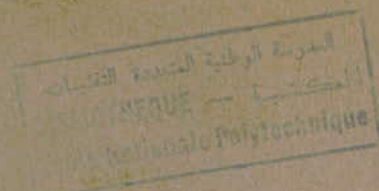 المدرسة الوطنية المتعددة التقنيات
المكتبة — BIBLIOTHEQUE
Nationale Polytechnique